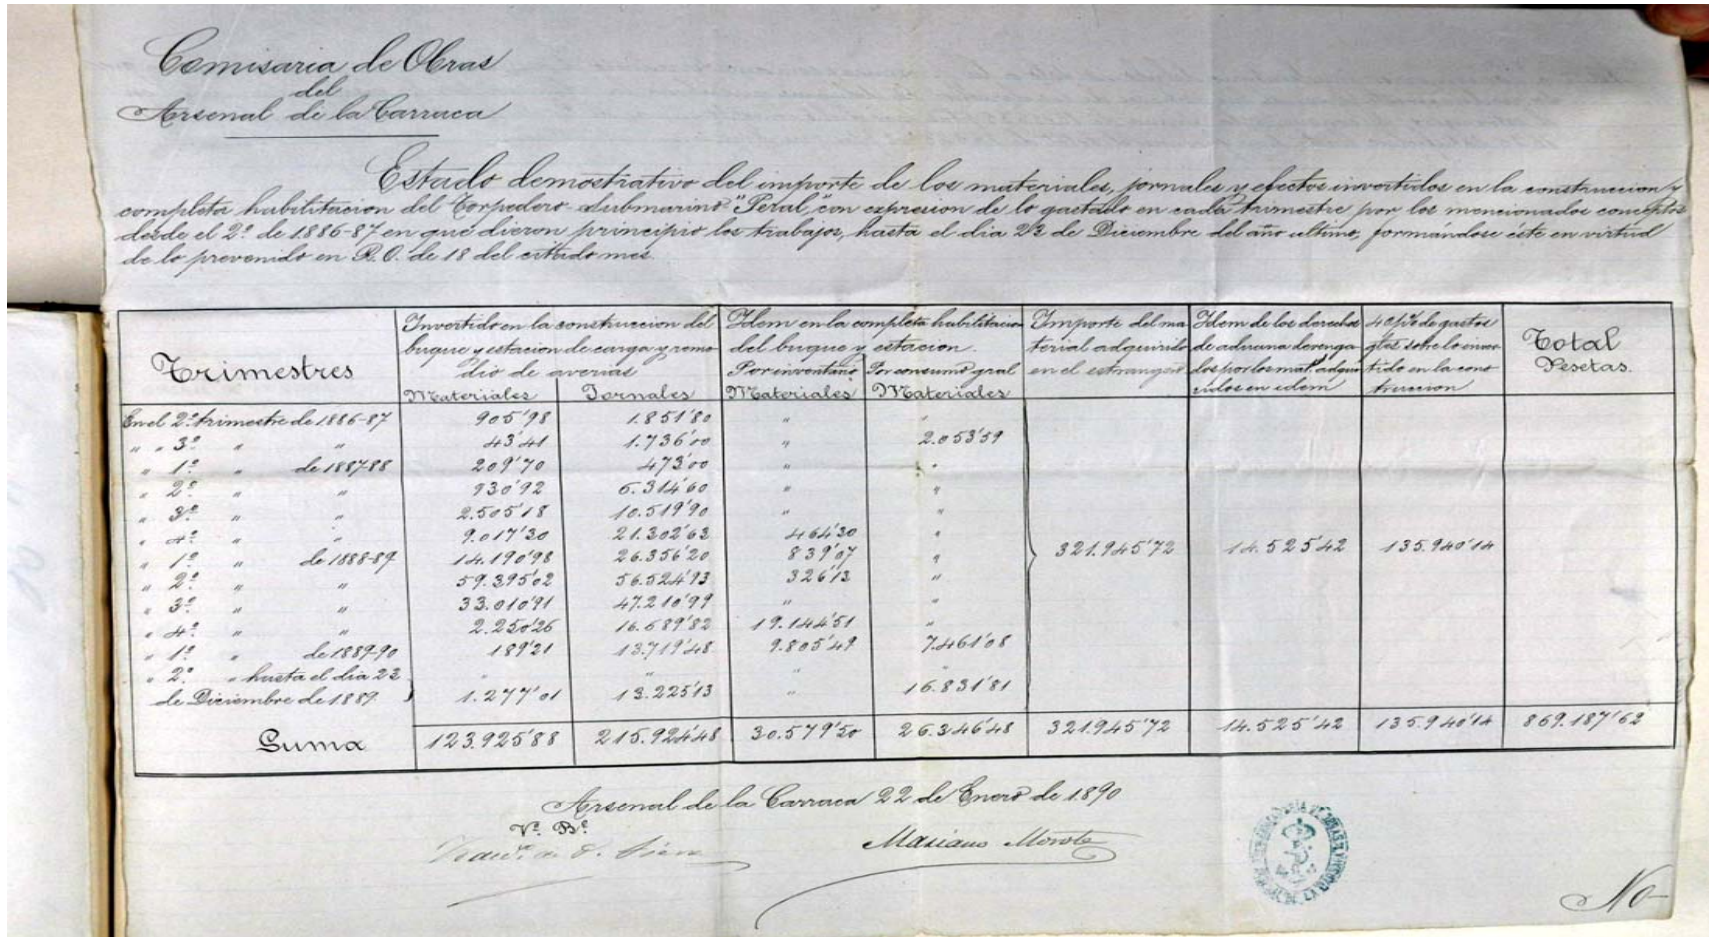 Comisaria de Obras
del
Arsenal de la Carraca
Estado demostrativo del importe de los materiales, jornales y efectos invertidos en la construccion y
completa habilitacion del Torpedero Submarino "Peral," con expresion de lo gastado en cada trimestre por los mencionados conceptos
desde el 2º de 1886-87 en que dieron principio los trabajos, hasta el dia 23 de Diciembre del año ultimo, formándose éste en virtud
de lo prevenido en R.O. de 18 del citado mes.
Trimestres
Invertido en la construccion del
buque y estacion de carga y reme
dio de averias
Materiales Jornales
Idem en la completa habilitacion
del buque y estacion.
Por inventario Por consumo gral
Materiales Materiales
Importe del ma
terial adquirido
en el estrangero
Idem de los derechos
de aduana devenga
dos por los mat.s adqui
ridos en idem
40 p% de gastos
gles sobre lo inver
tido en la cons
truccion
Total
Pesetas.
En el 2º trimestre de 1886-87 905'98 1.851'80 " "
" " 3º " " 43'41 1.736'00 " 2.053'59
" 1º " de 1887-88 209'70 473'00 " "
" 2º " " 930'92 6.314'60 " "
" 3º " " 2.505'18 10.519'90 " "
" 4º " " 9.017'30 21.302'63 464'30 "
" 1º " de 1888-89 14.190'98 26.356'20 839'07 " 321.945'72 14.525'42 135.940'14
" 2º " " 59.395'02 56.524'93 326'13 "
" 3º " " 33.010'91 47.210'99 " "
" 4º " " 2.250'26 16.689'82 19.144'51 "
" 1º " de 1889-90 189'21 13.719'48 9.805'49 7.461'08
" 2º " hasta el dia 23 " " " "
de Diciembre de 1889. 1.277'01 13.225'13 " 16.831'81
Suma 123.925'88 215.924'48 30.579'50 26.346'48 321.945'72 14.525'42 135.940'14 869.187'62
Arsenal de la Carraca 22 de Enero de 1890
Vº Bº
Mariano Morote
No